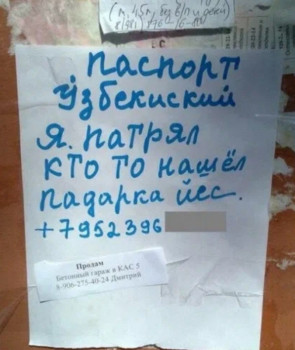 паспорт
узбекиский
я. патрял
кто то нашёл
падарка йес.
+7952396
Продам
Бетонный гараж в КАС 5
8-906-275-40-24 Дмитрий